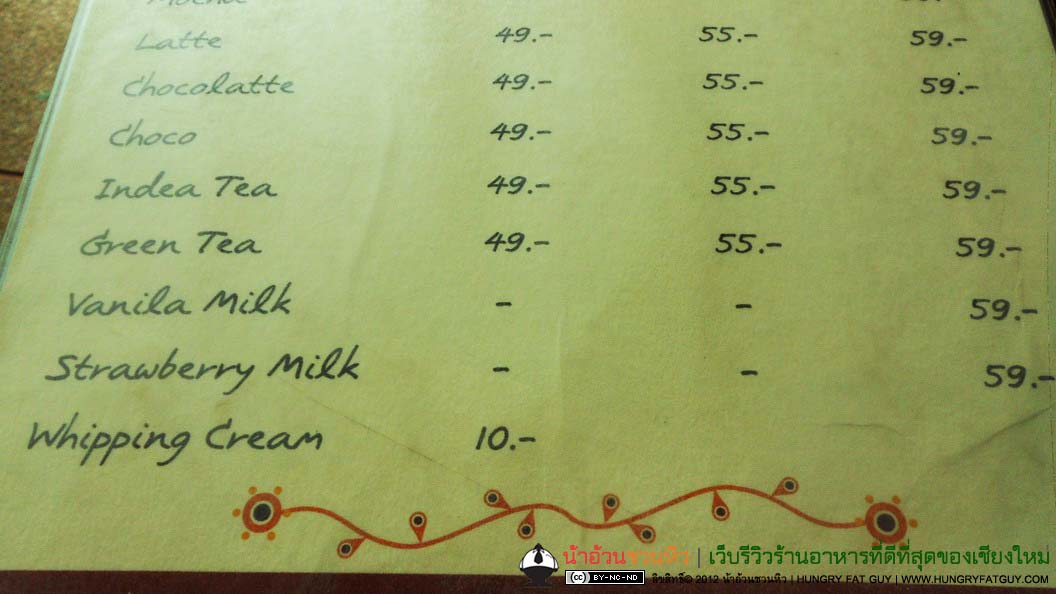 Mocha
Latte 49.- 55.- 59.-
Chocolatte 49.- 55.- 59.-
Choco 49.- 55.- 59.-
Indea Tea 49.- 55.- 59.-
Green Tea 49.- 55.- 59.-
Vanila Milk - - 59.-
Strawberry Milk - - 59.-
Whipping Cream 10.-
น้าอ้วนชวนหิว | เว็บรีวิวร้านอาหารที่ดีที่สุดของเชียงใหม่
cc BY-NC-ND ลิขสิทธิ์© 2012 น้าอ้วนชวนหิว | HUNGRY FAT GUY | WWW.HUNGRYFATGUY.COM